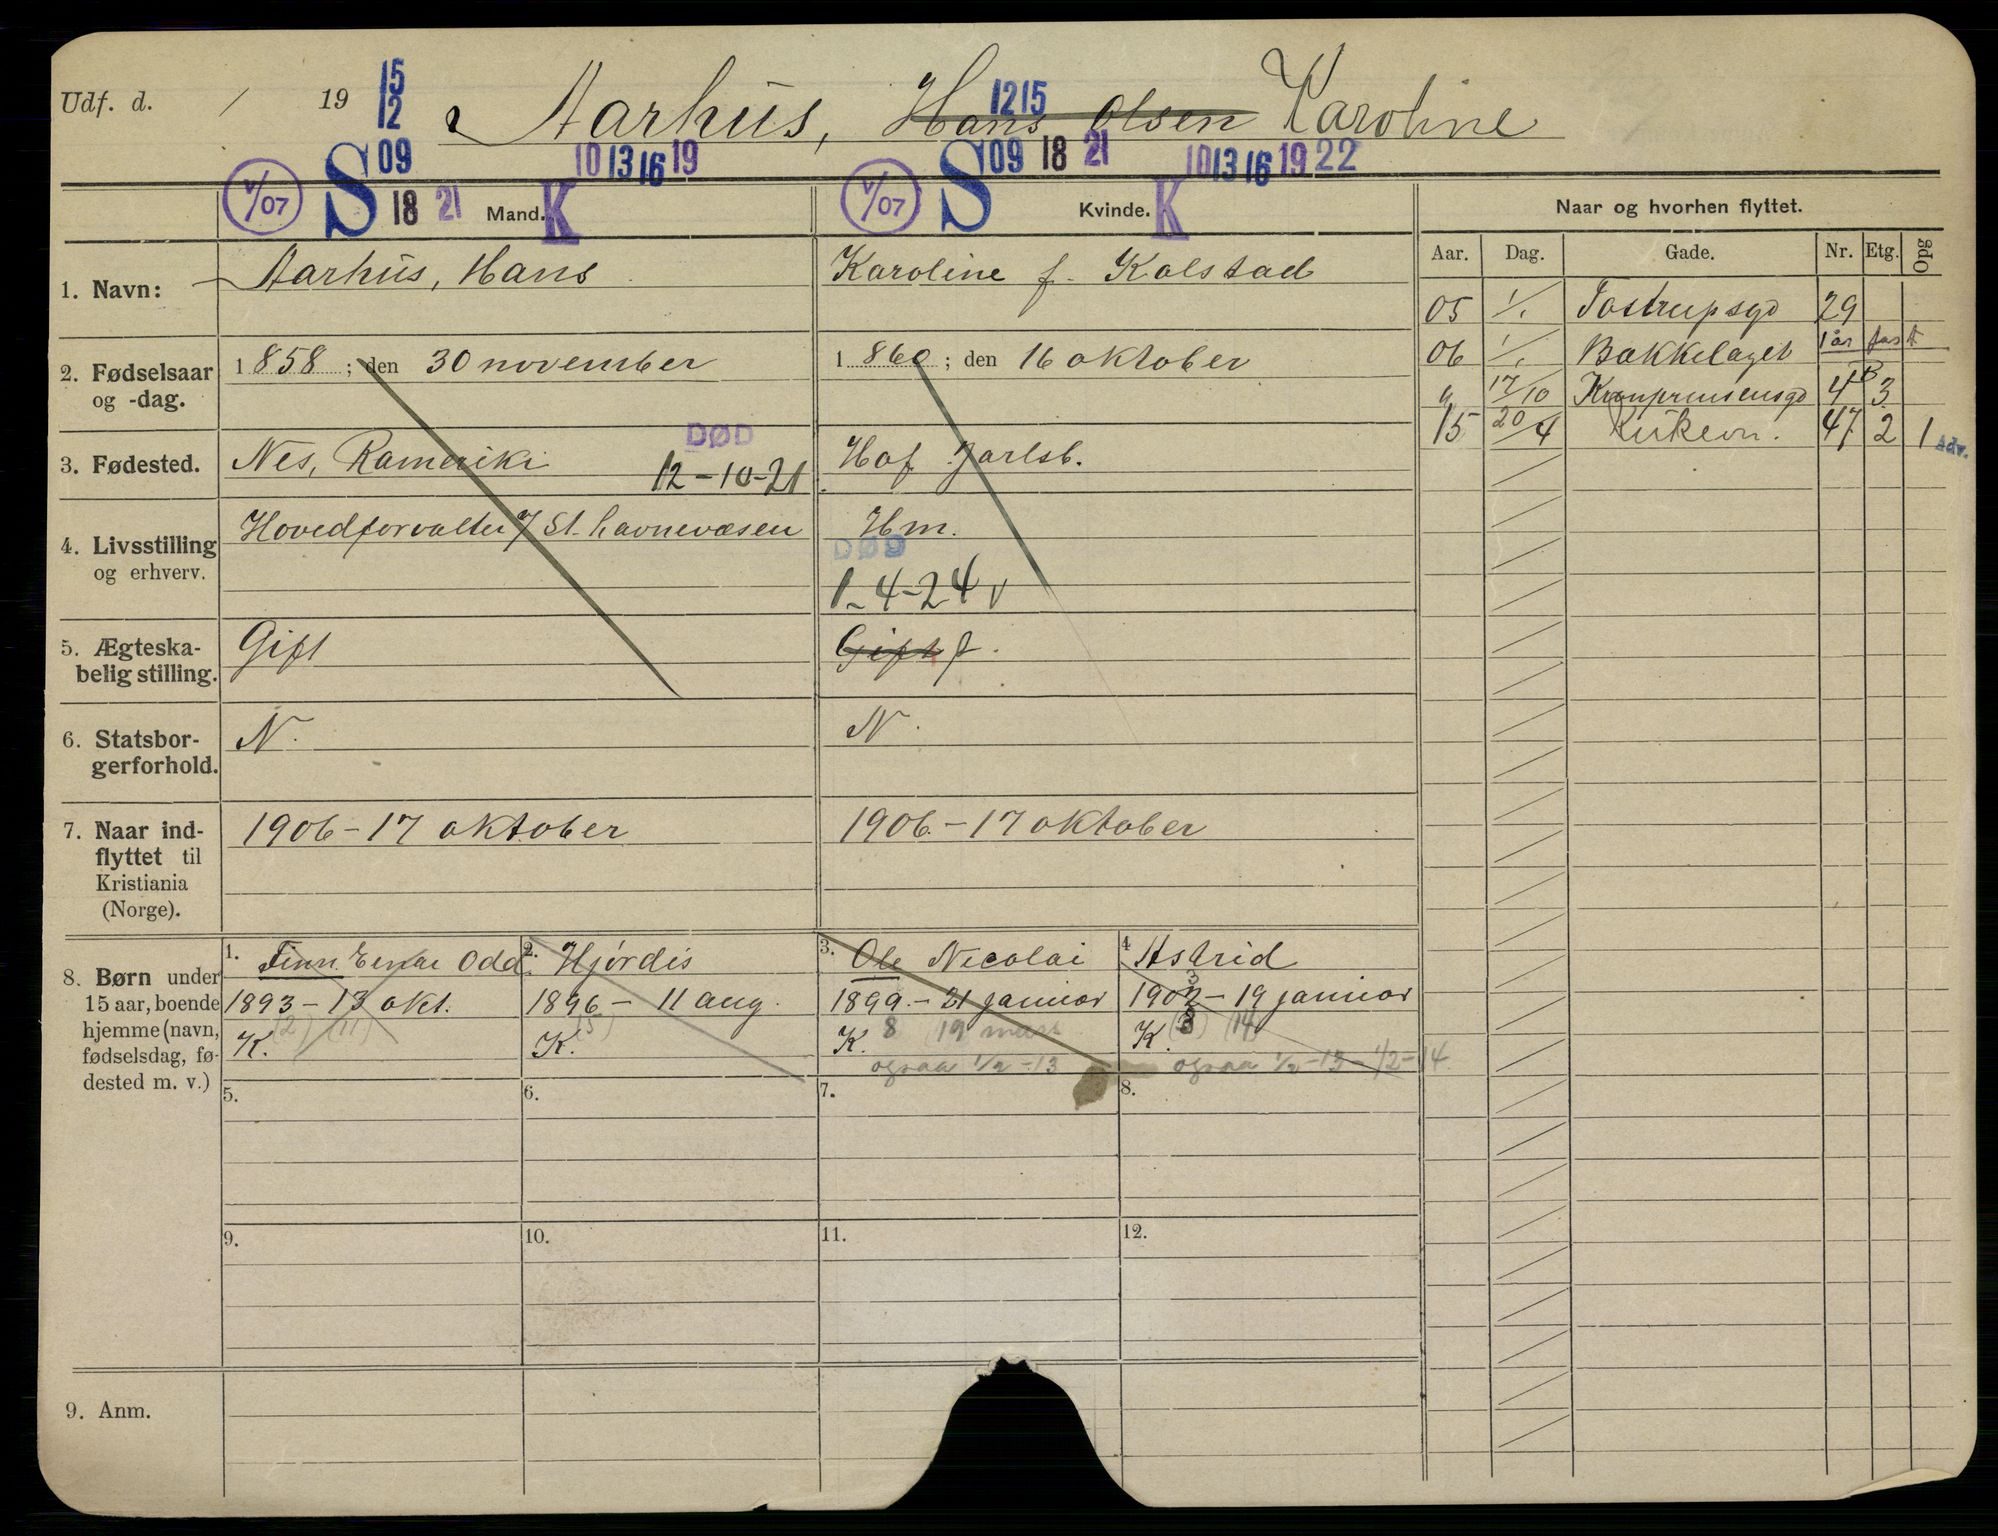 Udf. d. / 19 15 12 Aarhus, Hans Olsen Karoline
12 15
S 09 18 21 K 10 13 16 19 S 09 18 21 K 10 13 16 19 22
V/07 Mand. V/07 Kvinde. Naar og hvorhen flyttet.
Aar. Dag. Gade. Nr. Etg. Opg
1. Navn: Aarhus, Hans Karoline f. Kolstad
05 1/1 Tostrupsgd 29
06 1/1 Bakkelaget 1 år fast
" 17/10 Kronprinsensgd 4B 3
15 20/4 Kirkevn. 47 2 1 Adv.
2. Fødselsaar og -dag. 1858; den 30 november 1860; den 16 oktober
3. Fødested. Nes, Romerike DØD 12-10-21 Hof Jarlsb.
4. Livsstilling og erhverv. Hovedforvalter v/ St. havnevæsen Hm.
DØD
1-4-24 v
5. Ægteska-
belig stilling. Gift Gift f.
6. Statsbor-
gerforhold. N. N.
7. Naar ind-
flyttet til
Kristiania
(Norge). 1906-17 oktober 1906.-17 oktober
8. Børn under
15 aar, boende
hjemme (navn,
fødselsdag, fø-
dested m. v.)
1. Finn Einar Odd
1893-13 okt.
K. (2) (11)
2. Hjørdis
1896-11 aug.
K. (5)
3. Ole Nicolai
1899.-21 januar
K. 8 19
ogsaa 1/2-13
4 Astrid
1903-19 januar
K. 3 (14)
ogsaa 1/2-13-1/2-14
5. 6. 7. 8.
9. 10. 11. 12.
9. Anm.